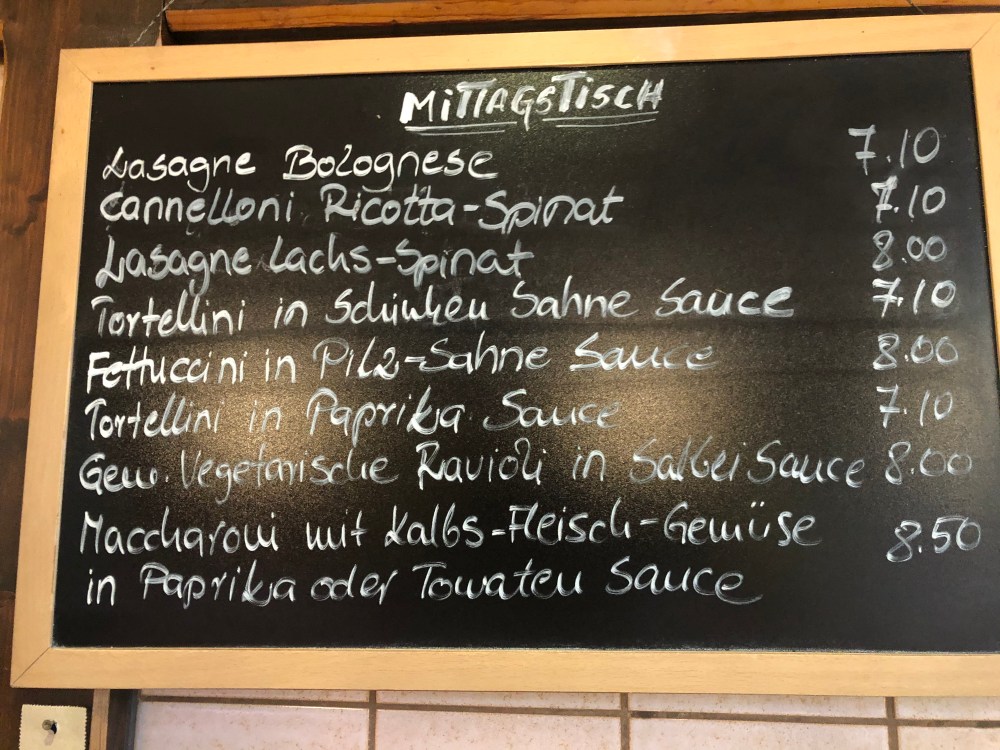 MiTTAGSTiSCH
Lasagne Bolognese 7.10
Cannelloni Ricotta-Spinat 7.10
Lasagne Lachs-Spinat 8.00
Tortellini in Schinken Sahne Sauce 7.10
Fettuccini in Pilz-Sahne Sauce 8.00
Tortellini in Paprika Sauce 7.10
Gem. Vegetarische Ravioli in Salbei Sauce 8.00
Maccharoni mit Kalbs-Fleisch-Gemüse 8.50
in Paprika oder Tomaten Sauce